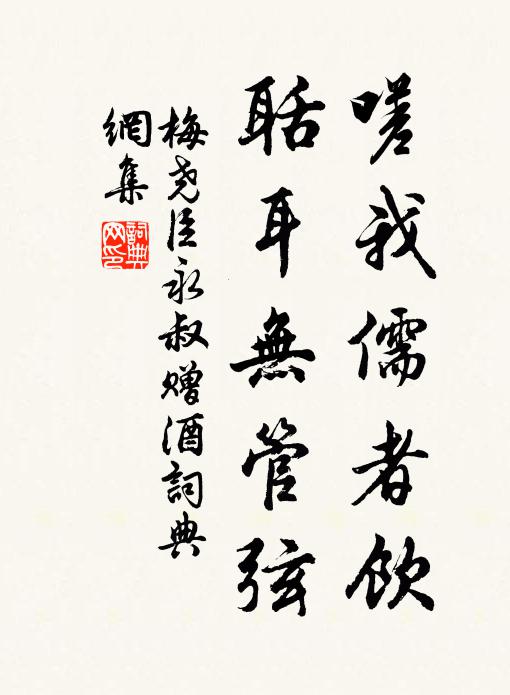 嗟我儒者飲
聒耳無管弦
梅堯臣永叔赠酒詞典
網集
詞典网印